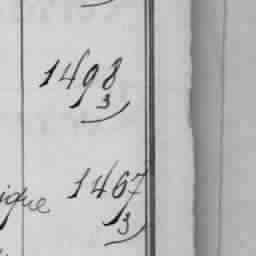 1498
3
ique 1467
3